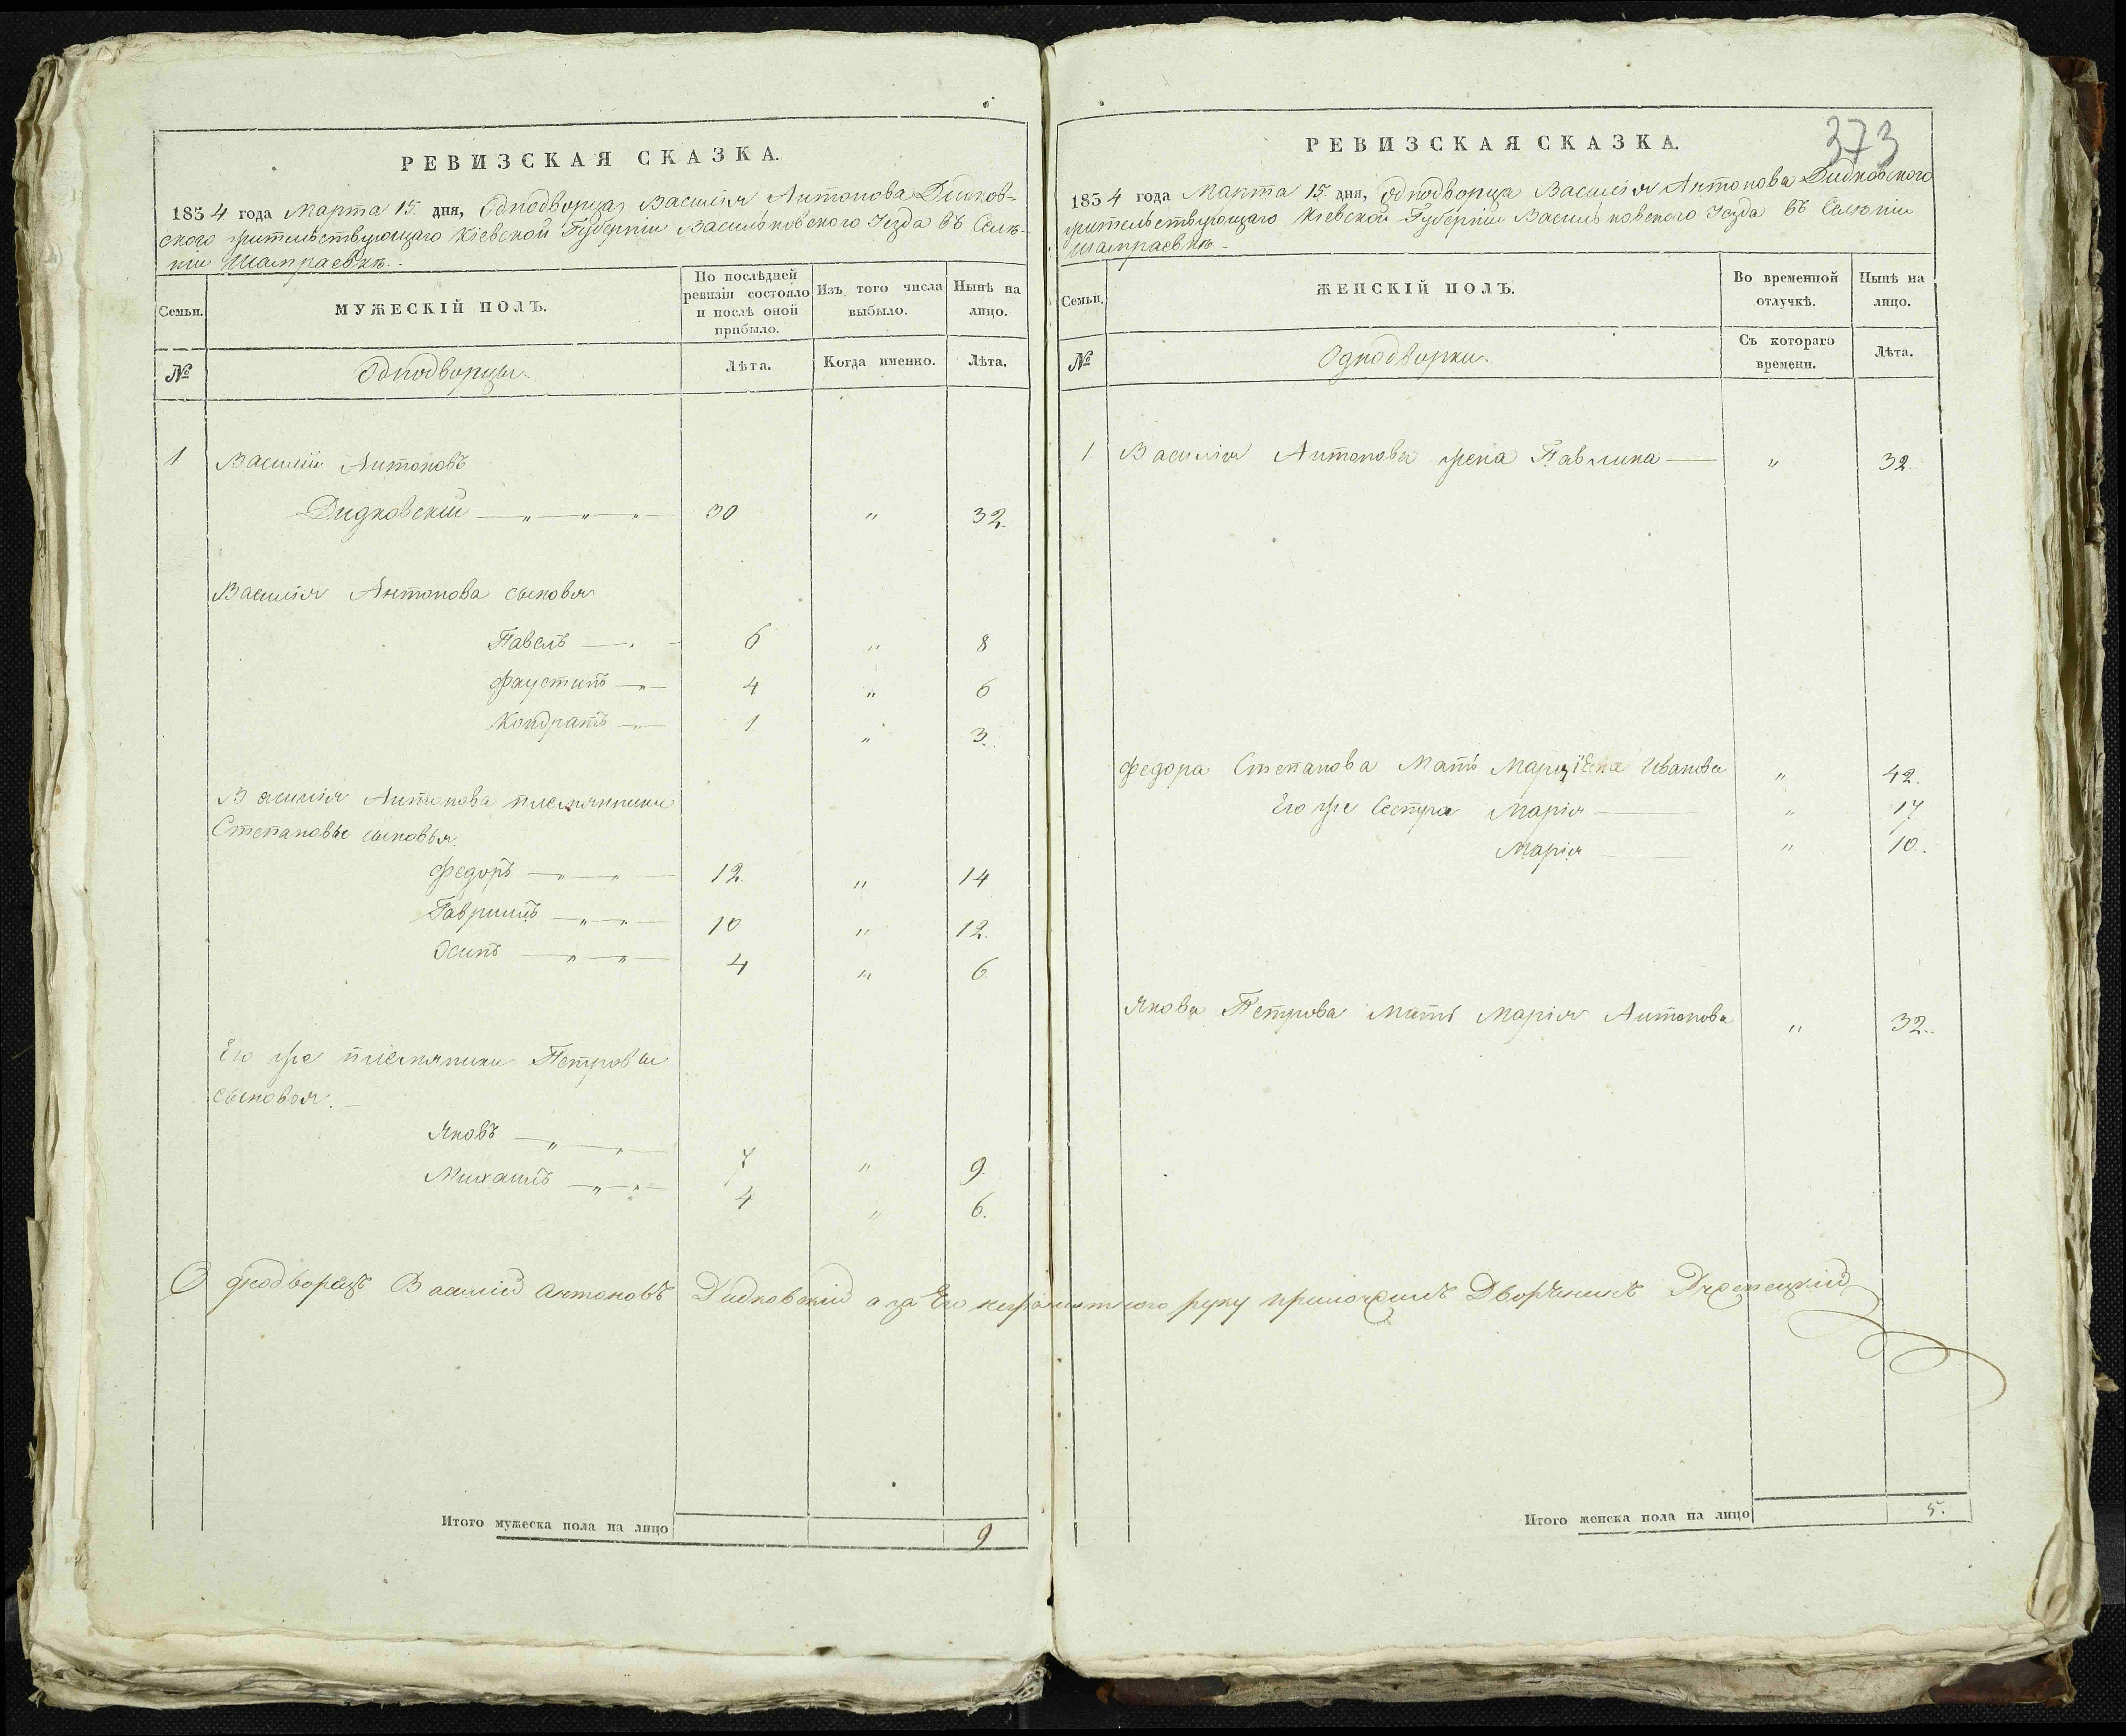 РЕВИЗСКАЯ СКАЗКА.
1834 года Марта 15. дня, Однодворца Василія Антонова Дидков-
ского жительствующаго Кіевской Губерніи Васильковского Уезда въ Селе-
ніи Шамраевкѣ.
Семьи.
МУЖЕСКІЙ ПОЛЪ.
По послѣдней ревизіи состояло и послѣ оной прибыло.
Изъ того числа выбыло.
Нынѣ на лицо.
№
Однодворцы.
Лѣта.
Когда именно.
Лѣта.
1 Василій Антоновъ
Дидковскій — „ — „ — „ — 30 „ 32.
Василія Антонова сыновья
Павелъ 6 „ 8
Фаустинъ 4 „ 6
Кондратъ 1 „ 3.
Василія Антонова племянники
Степановы сыновья.
Федоръ 12 „ 14
Гаврiилъ 10 „ 12.
Осипъ 4 „ 6
Его же племяники Петровы
сыновья. —
Яковъ 7 „ 9.
Михаилъ 4 „ 6.
Однодворецъ Василій Антоновъ Дидковскій а за Его неграмотного руку приложилъ Дворянинъ
Итого мужеска пола на лицо 9
373
РЕВИЗСКАЯ СКАЗКА.
1834 года Марта 15. дня, Однодворца Василія Антонова Дидковского
жительствующаго Кіевской Губерніи Васильковского Уезда въ Селеніи
Шамраевкѣ. —
Семьи.
ЖЕНСКІЙ ПОЛЪ.
Во временной отлучкѣ.
Нынѣ на лицо.
№
Однодворки.
Съ котораго времени.
Лѣта.
1. Василія Антонова жена Павлина — „ 32.
Федора Степанова Мать Иванова „ 42.
Его же Сестра Марія „ 17
Марія „ 10.
Якова Петрова Мать Марія Антонова „ 32.
Итого женска пола на лицо 5.